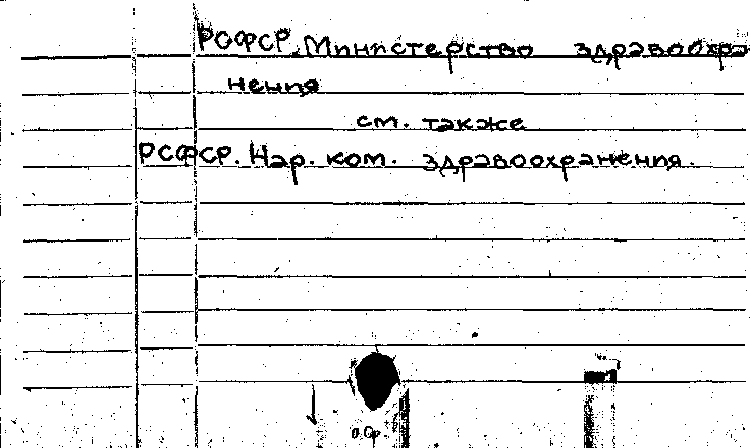 РСФСР. Министерство здравоохра
нения
см. также
РСФСР. Нар. ком. здравоохранения.